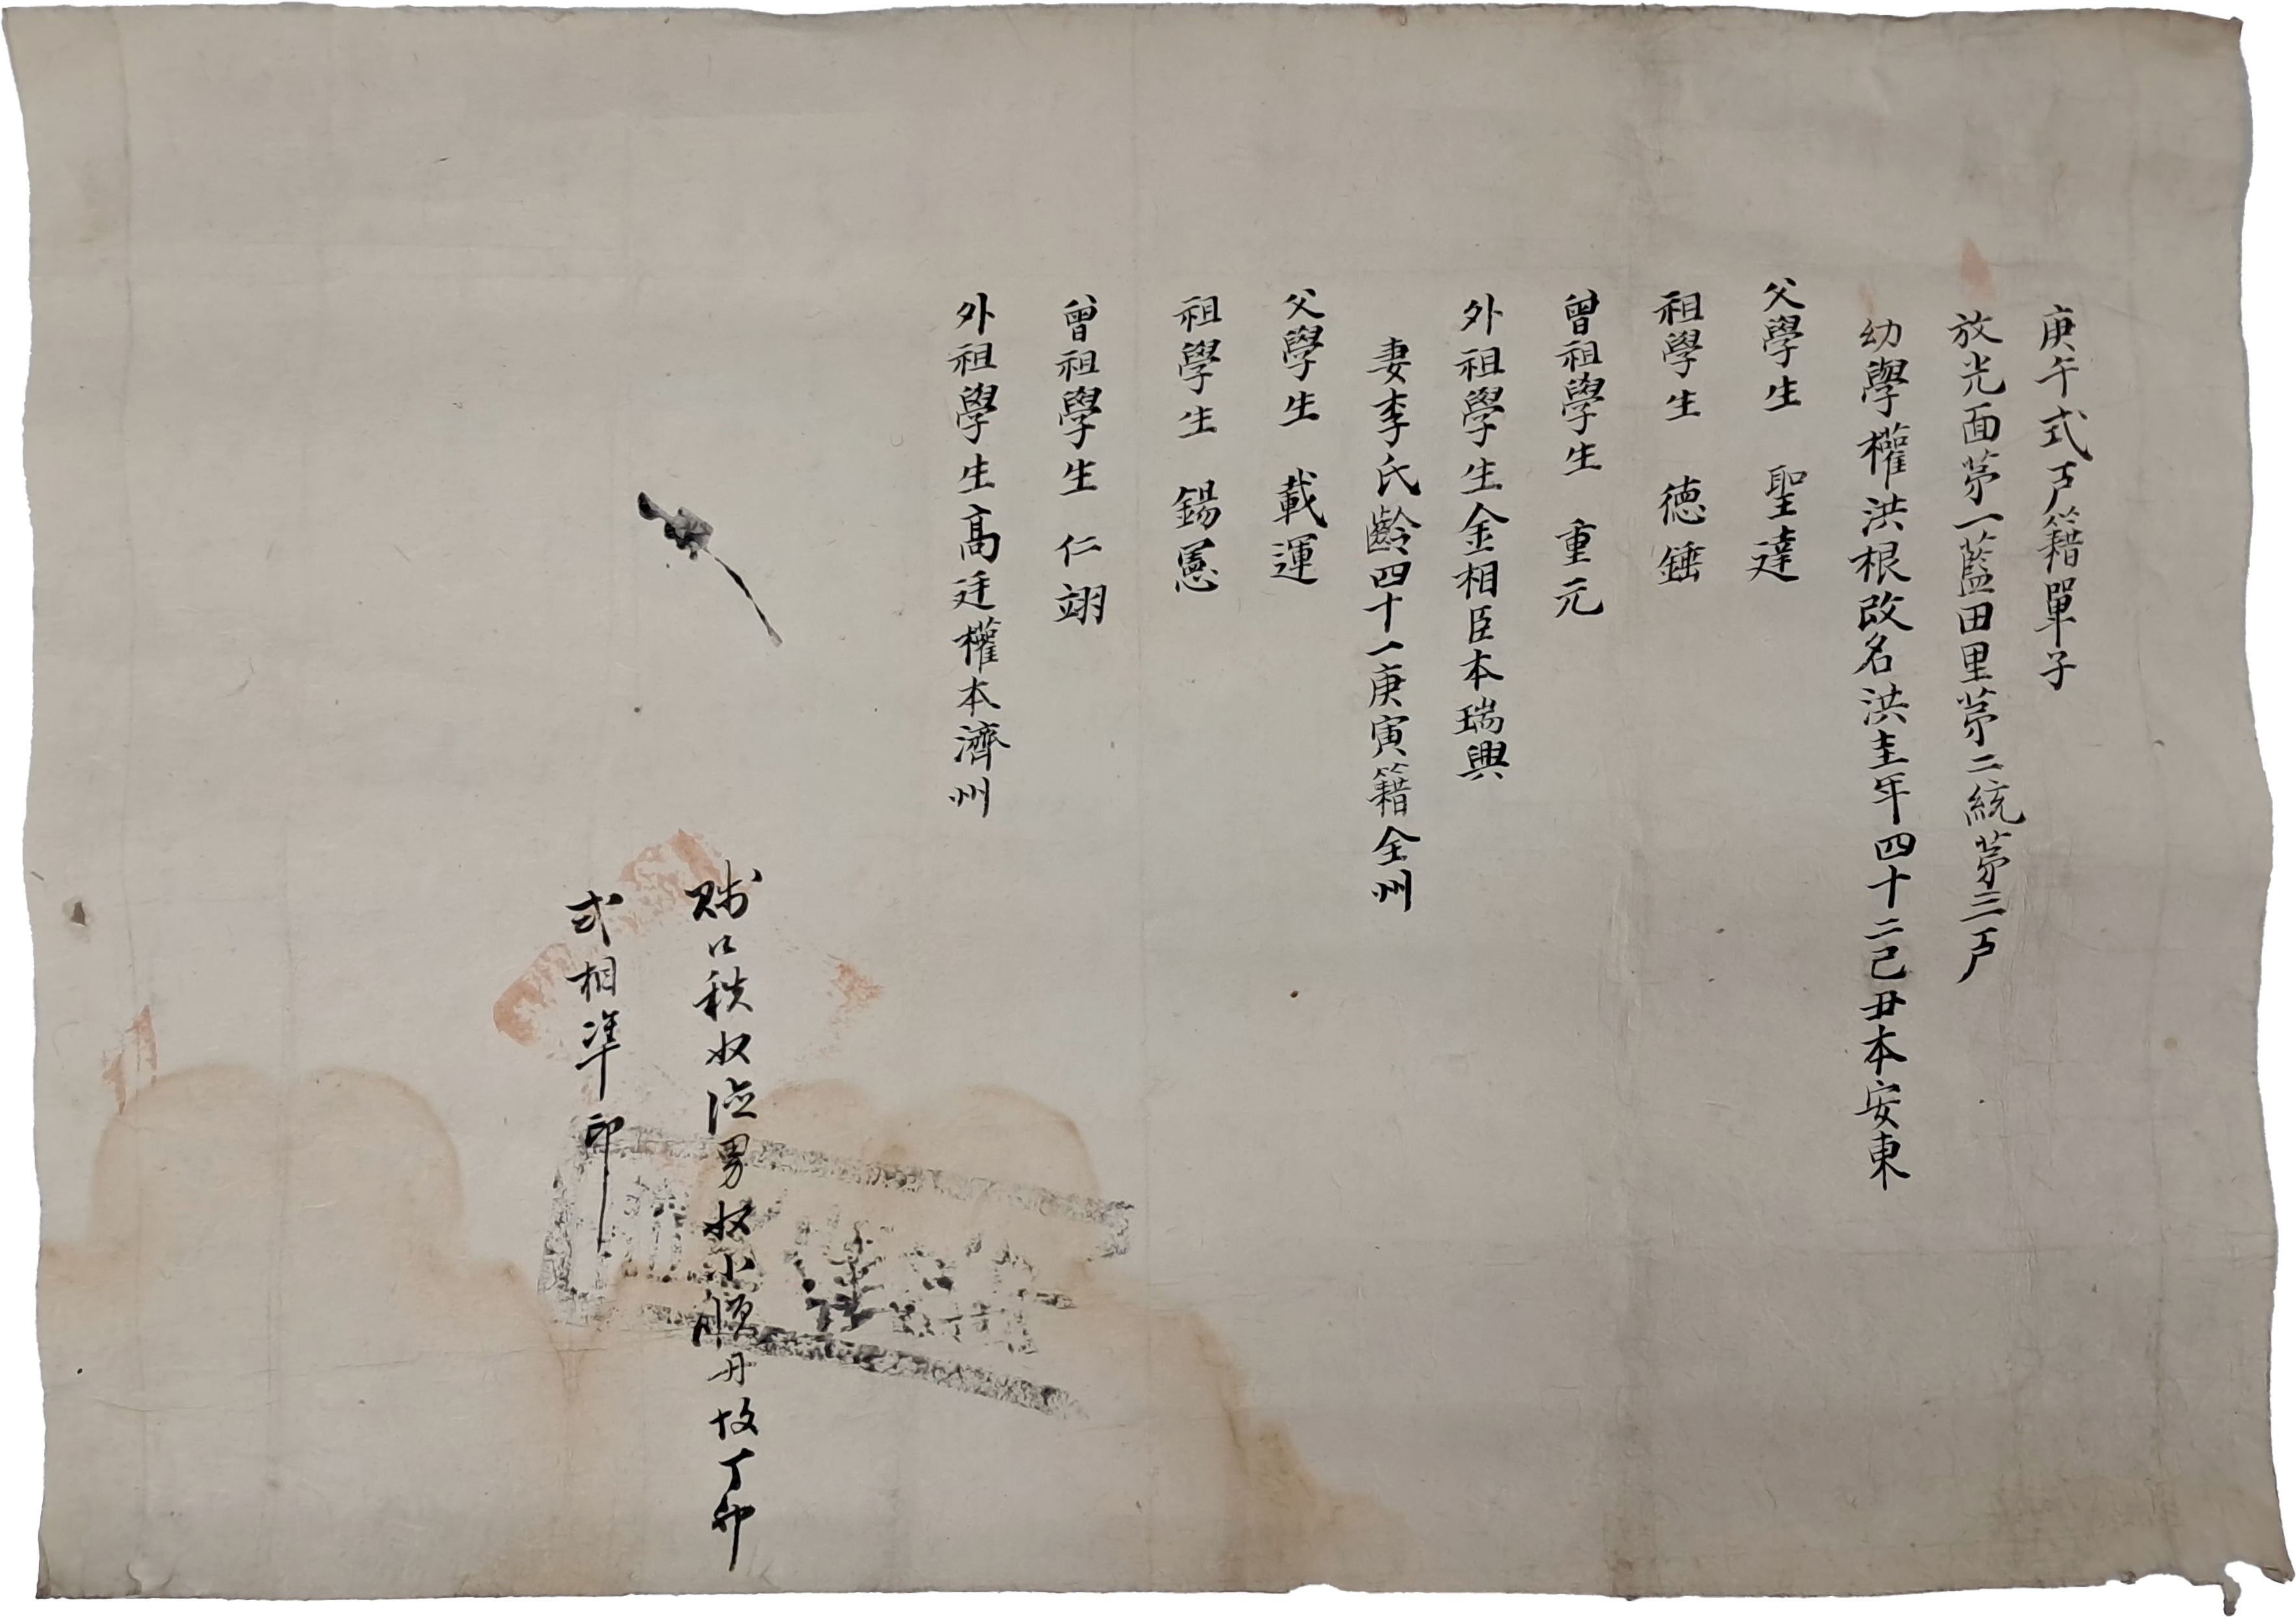 庚午式戶籍單子
放光面苐一藍田里苐二統苐三戶
幼學權洪根改名洪圭年四十二己丑本安東
父學生 聖達
祖學生 德錘
曾祖學生 重元
外祖學生金相臣本瑞興
妻李氏齡四十一庚寅籍全州
父學生 載運
祖學生 錫憲
曾祖學生 仁翊
外祖學生高廷權本濟州
賤口秩奴德男奴小順丹故丁卯
式相準印